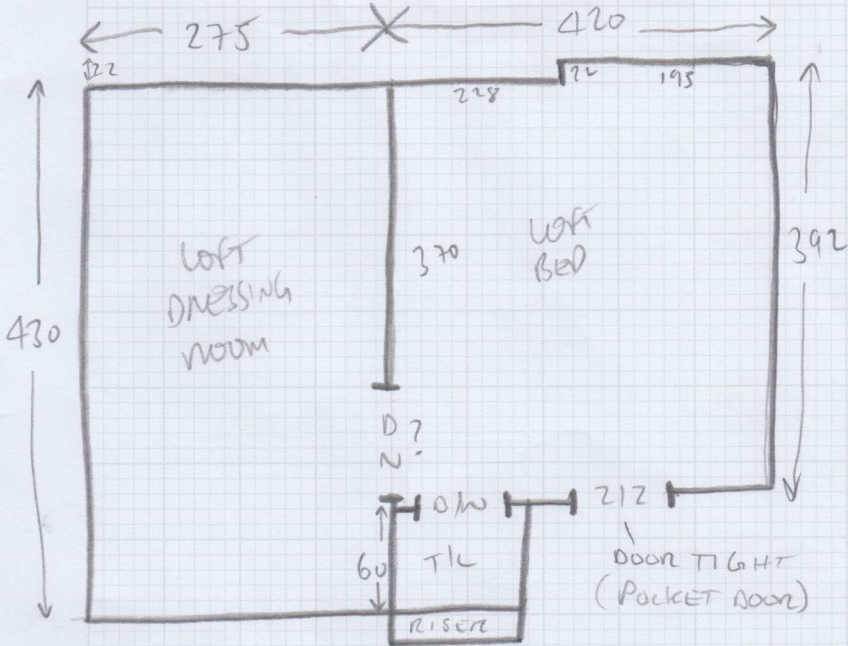 275
420
22
228
22
195
LOFT
DRESSING
ROOM
370
LOFT
BED
392
430
D ?
N
D/W
212
60
T/L
DOOR TIGHT
(POCKET DOOR)
RISER